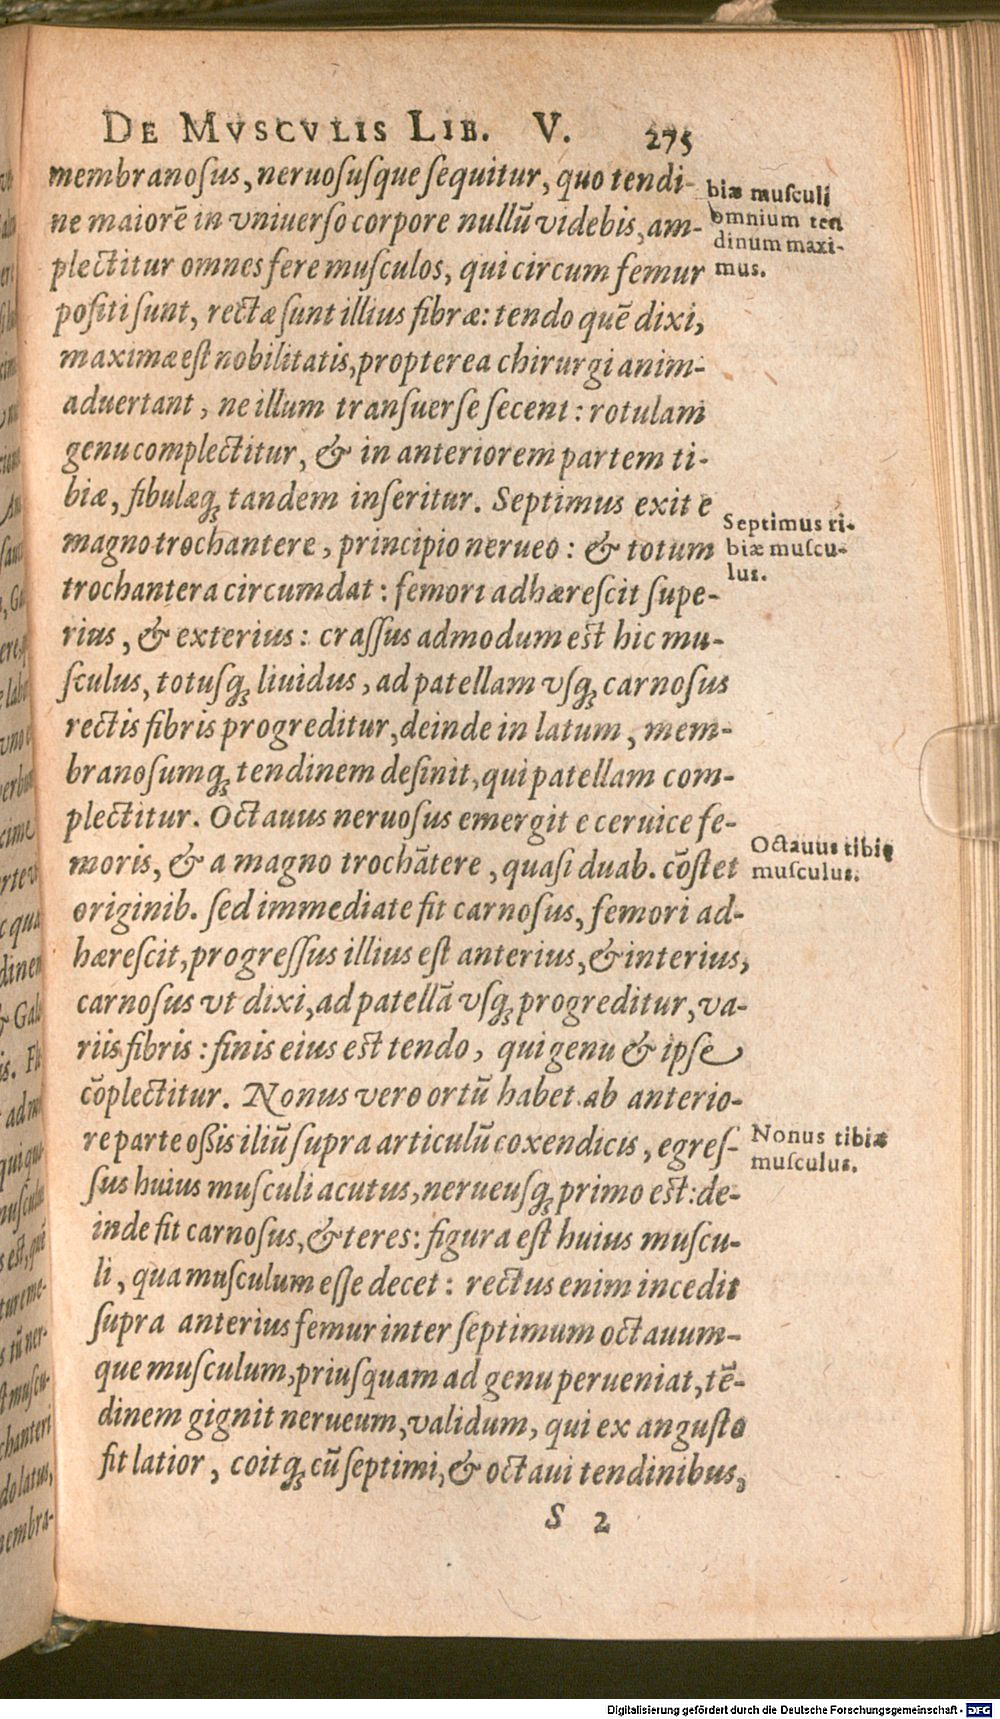 DE MVSCVLIS LIB. V. 275
membranoſus, neruoſusque ſequitur, quo tendi-
ne maiorē in vniuerſo corpore nullū videbis, am-
plectitur omnes fere muſculos, qui circum femur
poſiti ſunt, rectæ ſunt illius fibræ: tendo quē dixi,
maximæ eſt nobilitatis, propterea chirurgi anim-
aduertant, ne illum transuerſe ſecent: rotulam
genu complectitur, & in anteriorem partem ti-
biæ, fibulæq; tandem inſeritur. Septimus exit e
magno trochantere, principio nerueo: & totum
trochantera circumdat: femori adhæreſcit ſupe-
rius, & exterius: craſſus admodum eſt hic mu-
ſculus, totusq; liuidus, ad patellam vſq; carnoſus
rectis fibris progreditur, deinde in latum, mem-
branoſumq; tendinem deſinit, qui patellam com-
plectitur. Octauus neruoſus emergit e ceruice fe-
moris, & a magno trochātere, quaſi duab. cōſtet
originib. ſed immediate fit carnoſus, femori ad-
hæreſcit, progreſſus illius eſt anterius, & interius,
carnoſus vt dixi, ad patellā vſq; progreditur, va-
riis fibris: finis eius eſt tendo, qui genu & ipſe
cōplectitur. Nonus vero ortū habet ab anterio-
re parte oßis iliū ſupra articulū coxendicis, egreſ-
ſus huius muſculi acutus, nerueusq; primo eſt: de-
inde fit carnoſus, & teres: figura eſt huius muſcu-
li, qua muſculum eſſe decet: rectus enim incedit
ſupra anterius femur inter ſeptimum octauum-
que muſculum, priuſquam ad genu perueniat, tē-
dinem gignit nerueum, validum, qui ex anguſto
fit latior, coitq; cū ſeptimi, & octaui tendinibus,
S 2
biæ muſculi
omnium ten
dinum maxi-
mus.
Septimus ti-
biæ muſcu-
lus.
Octauus tibię
muſculus.
Nonus tibiæ
muſculus.
Digitalisierung gefördert durch die Deutsche Forschungsgemeinschaft - DFG